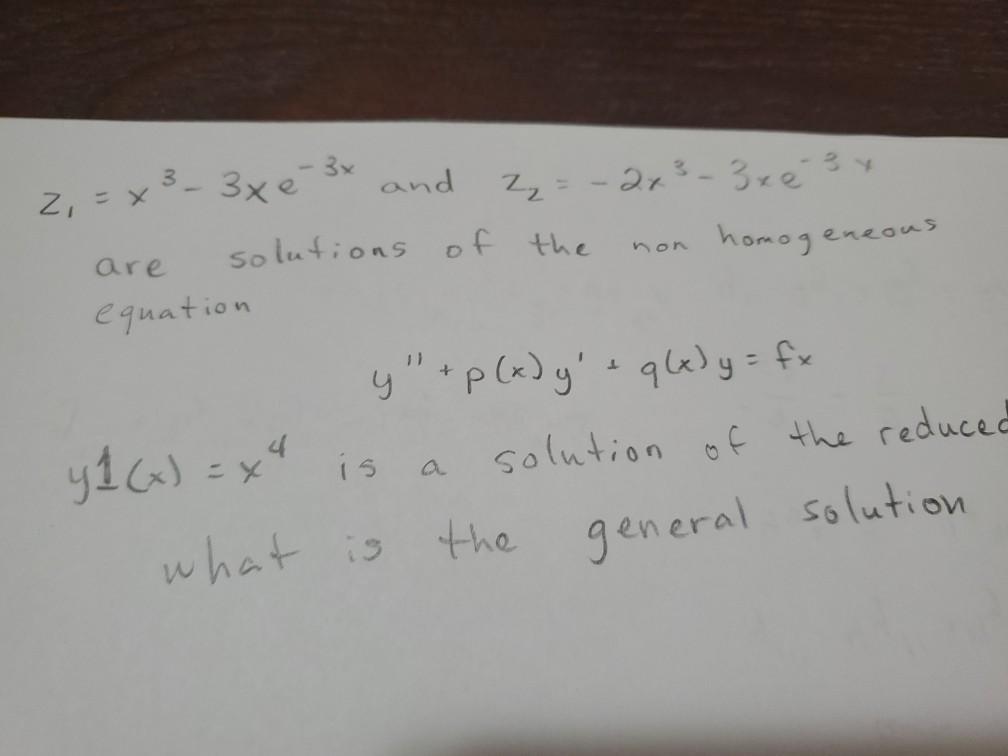 z₁ = x³ - 3xe⁻³ˣ and z₂ = -2x³ - 3xe⁻³ˣ
are solutions of the non homogeneous
equation
y'' + p(x)y' + q(x)y = fx
y1(x) = x⁴ is a solution of the reduced
what is the general solution